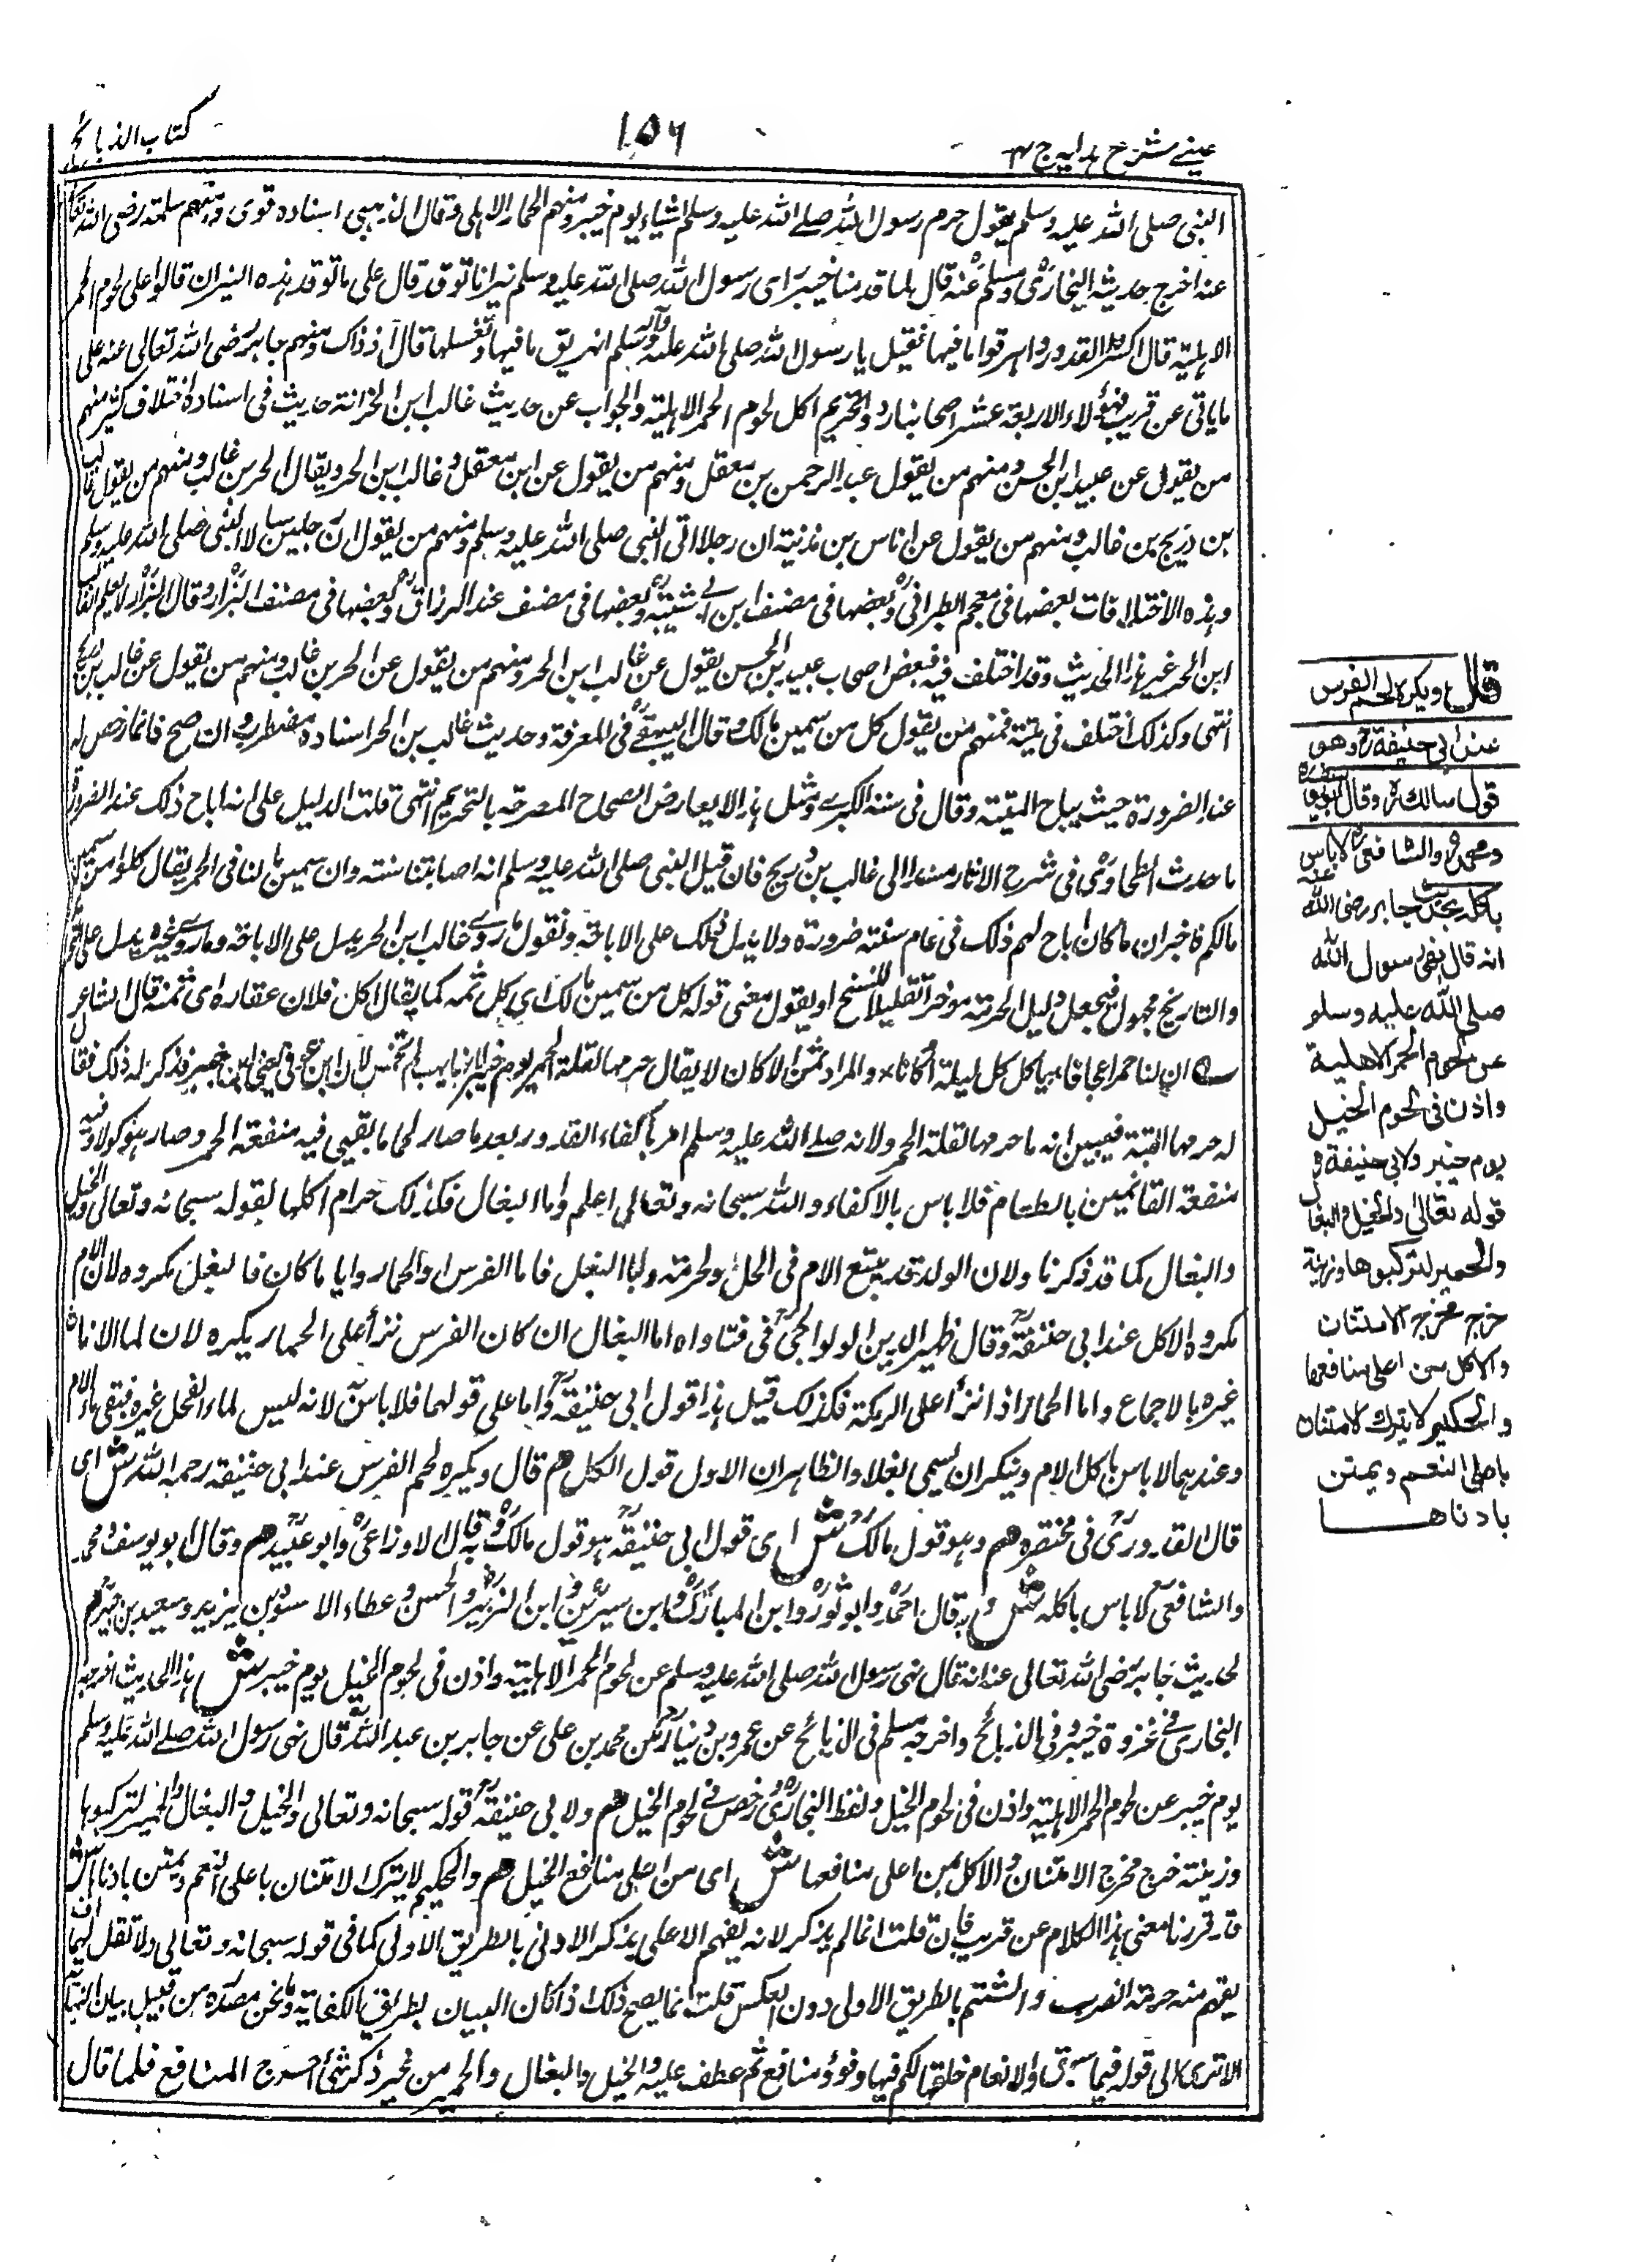 عيني شرح هدايه ج ٤
١٥٦
كتاب الذبائح
النبي صلى الله عليه وسلم يقول حرم رسول الله صلے الله عليه وسلم اشياء يوم خيبر ومنهم الحمار الاهلى وقال الذهبي اسناده قوى ومنهم سلمته رضى الله تعا
عنه اخرج حديثه البخارى ومسلم عنه قال لما قدمنا خيبر راى رسول الله صلى الله عليه وسلم نيرانا توقد قال على ما توقد هذه النيران قالوا على لحوم الحمر
الاهلية قال اكسروا القدور واهرقوا ما فيها فقيل يا رسول الله صلى الله عليه وآله وسلم انهريق ما فيها ونغسلها قال او ذاك ومنهم جابر رضى الله تعالى عنه على
ما ياتى عن قريب فهؤلاء الاربعة عشر اصحابنا رووا تحريم اكل لحوم الحمر الاهلية والجواب عن حديث غالب ابن الحر انه حديث فى اسناده اختلاف كثير منهم
من يقول عن عبيد ابن الحسن ومنهم من يقول عبد الرحمن بن معقل ومنهم من يقول عن ابن معقل وغالب ابن الحر ويقال الحر بن غالب ومنهم من يقول غالب
بن ذريح بن غالب ومنهم من يقول عن اناس بن مزنية ان رجلا اتى النبي صلى الله عليه وسلم ومنهم من يقول ان رجلين سالا النبى صلى الله عليه وسلم
وهذه الاختلافات بعضها فى معجم الطبرانى وبعضها فى مصنف ابن ابى شيبة وبعضها فى مصنف عبد الرزاق وبعضها فى مصنف البزار وقال البزار لا يعلم لغالب
ابن الحر غير هذا الحديث وقد اختلف فيه فبعض اصحاب عبيد بن الحسن يقول عن غالب ابن الحر ومنهم من يقول عن الحر بن غالب ومنهم من يقول عن غالب بن ذريح
انتهى وكذلك اختلف فى متنه فمنهم من يقول كل من سمين مالك وقال البيهقى فى المعرفة وحديث غالب بن الحر اسناده مضطرب وان صح فانما رخص له
عند الضرورة حيث يباح الميتة وقال فى سننه الكبرے ومثل هذا لا يعارض الصحاح المصرحة بالتحريم انتهى قلت الدليل على انه اباح ذلك عند الضرورة
ما حدث الطحاوى فى شرح الاثار مسندا الى غالب بن ذريح قال قيل النبى صلى الله عليه وسلم انه اصابتنا سنته وان سمين مالنا فى الحمر فقال كلوا من سمين
مالكم فاخبر ان ما كان اباح لهم ذلك فى عام سنته ضرورة ولا يدل ذلك على الاباحة ونقول ما روے غالب ابن الحر يدل على الاباحة وما روے غيره يدل على الحرمة
والتاريخ مجهول فيجعل دليل الحرمة موخرا تقليلا للنسخ او يقول معنى قوله كل من سمين مالك اى كل ثمنه كما يقال اكل فلان عقاره اى ثمنه قال الشاعر
ان لنا حمرا عجافا ياكلن كل ليلة اكافا والمراد ثمن الاكاف لا يقال حرمها لقلة الحمير يوم خيبر
له حرمها البتة فيبين انه ما حرمها لقلة الحمر ولانه صلے الله عليه وسلم امر باكفاء القدور بعد ما صار لحما ما بقى فيه منفعة الحمر وصار
منفعة القائمين بالطعام فلا باس بالاكفاء والله سبحانه وتعالى اعلم واما البغال فكذلك حرام اكلها لقوله سبحانه وتعالى والخيل
والبغال كما قد ذكرنا ولان الولد قد يتبع الام فى الحل والحرمة واما البغل فاما الفرس او الحمار وايا ما كان فالبغل مكروه لان الام
مكروه الاكل عند ابى حنيفة وقال ظهير الدين الولوالجى فى فتاواه اما البغال ان كان الفرس نزا على الحمار يكره لان لها الاناث
غيره بالاجماع واما الحمار اذا نزا على الرمكة فكذلك قيل هذا قول ابى حنيفة واما على قولهما فلا باس لانه ليس لماء الفحل غيره فبقى ماء الام
وعندهما لا باس باكل الام وينكر ان يسمى بغلا والظاهر ان الاول قول الكل هم قال ويكره لحم الفرس عند ابى حنيفة رحمه الله ش اى
قال القدورى فى مختصره هم وهو قول مالك ش اى قول ابى حنيفة هو قول مالك وبه قال الاوزاعى وابو عبيد هم وقال ابو يوسف ومحمد
والشافعى لا باس باكله ش وبه قال احمد وابو ثور وابن المبارك وابن سيرين وابن الزبير والحسن وعطاء والاسود بن يزيد وسعيد بن جبير هم
لحديث جابر رضى الله تعالى عنه انه قال نهى رسول الله صلى الله عليه وسلم عن لحوم الحمر الاهلية واذن فى لحوم الخيل يوم خيبر ش هذا الحديث اخرجه
البخارى فے غزوة خيبر وفى الذبائح واخرجه مسلم فى الذبائح عن عمرو بن دينار عن محمد بن على عن جابر بن عبد الله قال نهى رسول الله صلے الله عليه وسلم
يوم خيبر عن لحوم الحمر الاهلية واذن فى لحوم الخيل ولفظ البخارى ورخص فے لحوم الخيل هم ولابى حنيفة قوله سبحانه وتعالى والخيل والبغال والحمير لتركبوها
وزينة خرج مخرج الامتنان والاكل من اعلى منافعها ش اى من اعلى منافع الخيل هم والحكيم لا يترك الامتنان باعلى النعم ويمتن بادناها ش
قد قررنا معنى هذا الكلام عن قريب فان قلت انما لم يذكر لانه يفهم الاعلى بذكر الادنى بالطريق الاولى كما فى قوله سبحانه وتعالى ولا تقل لهما اف
يفهم منه حرمة الضرب والشتم بالطريق الاولى دون العكس قلت انما يصح ذلك اذا كان البيان بطريق الكفاية وما نحن بصدده من قبيل بيان النهاية
الا ترى الى قوله فيما سبق والانعام خلقها لكم فيها دفؤ ومنافع ثم عطف عليه والخيل والبغال والحمير من غير ذكر شئ اخرج المنافع فلما قال
قال ويكره لحم الفرس
عند ابى حنيفة رح وهو
قول مالك رح وقال ابو يوسف
ومحمد رح والشافعى رح لا باس
باكله لحديث جابر رضى الله عنه
انه قال نهى رسول الله
صلى الله عليه وسلم
عن لحوم الحمر الاهلية
واذن فى لحوم الخيل
يوم خيبر ولابى حنيفة رح
قوله تعالى والخيل والبغال
والحمير لتركبوها وزينة
خرج مخرج الامتنان
والاكل من اعلى منافعها
والحكيم لا يترك الامتنان
باعلى النعم ويمتن
بادناها